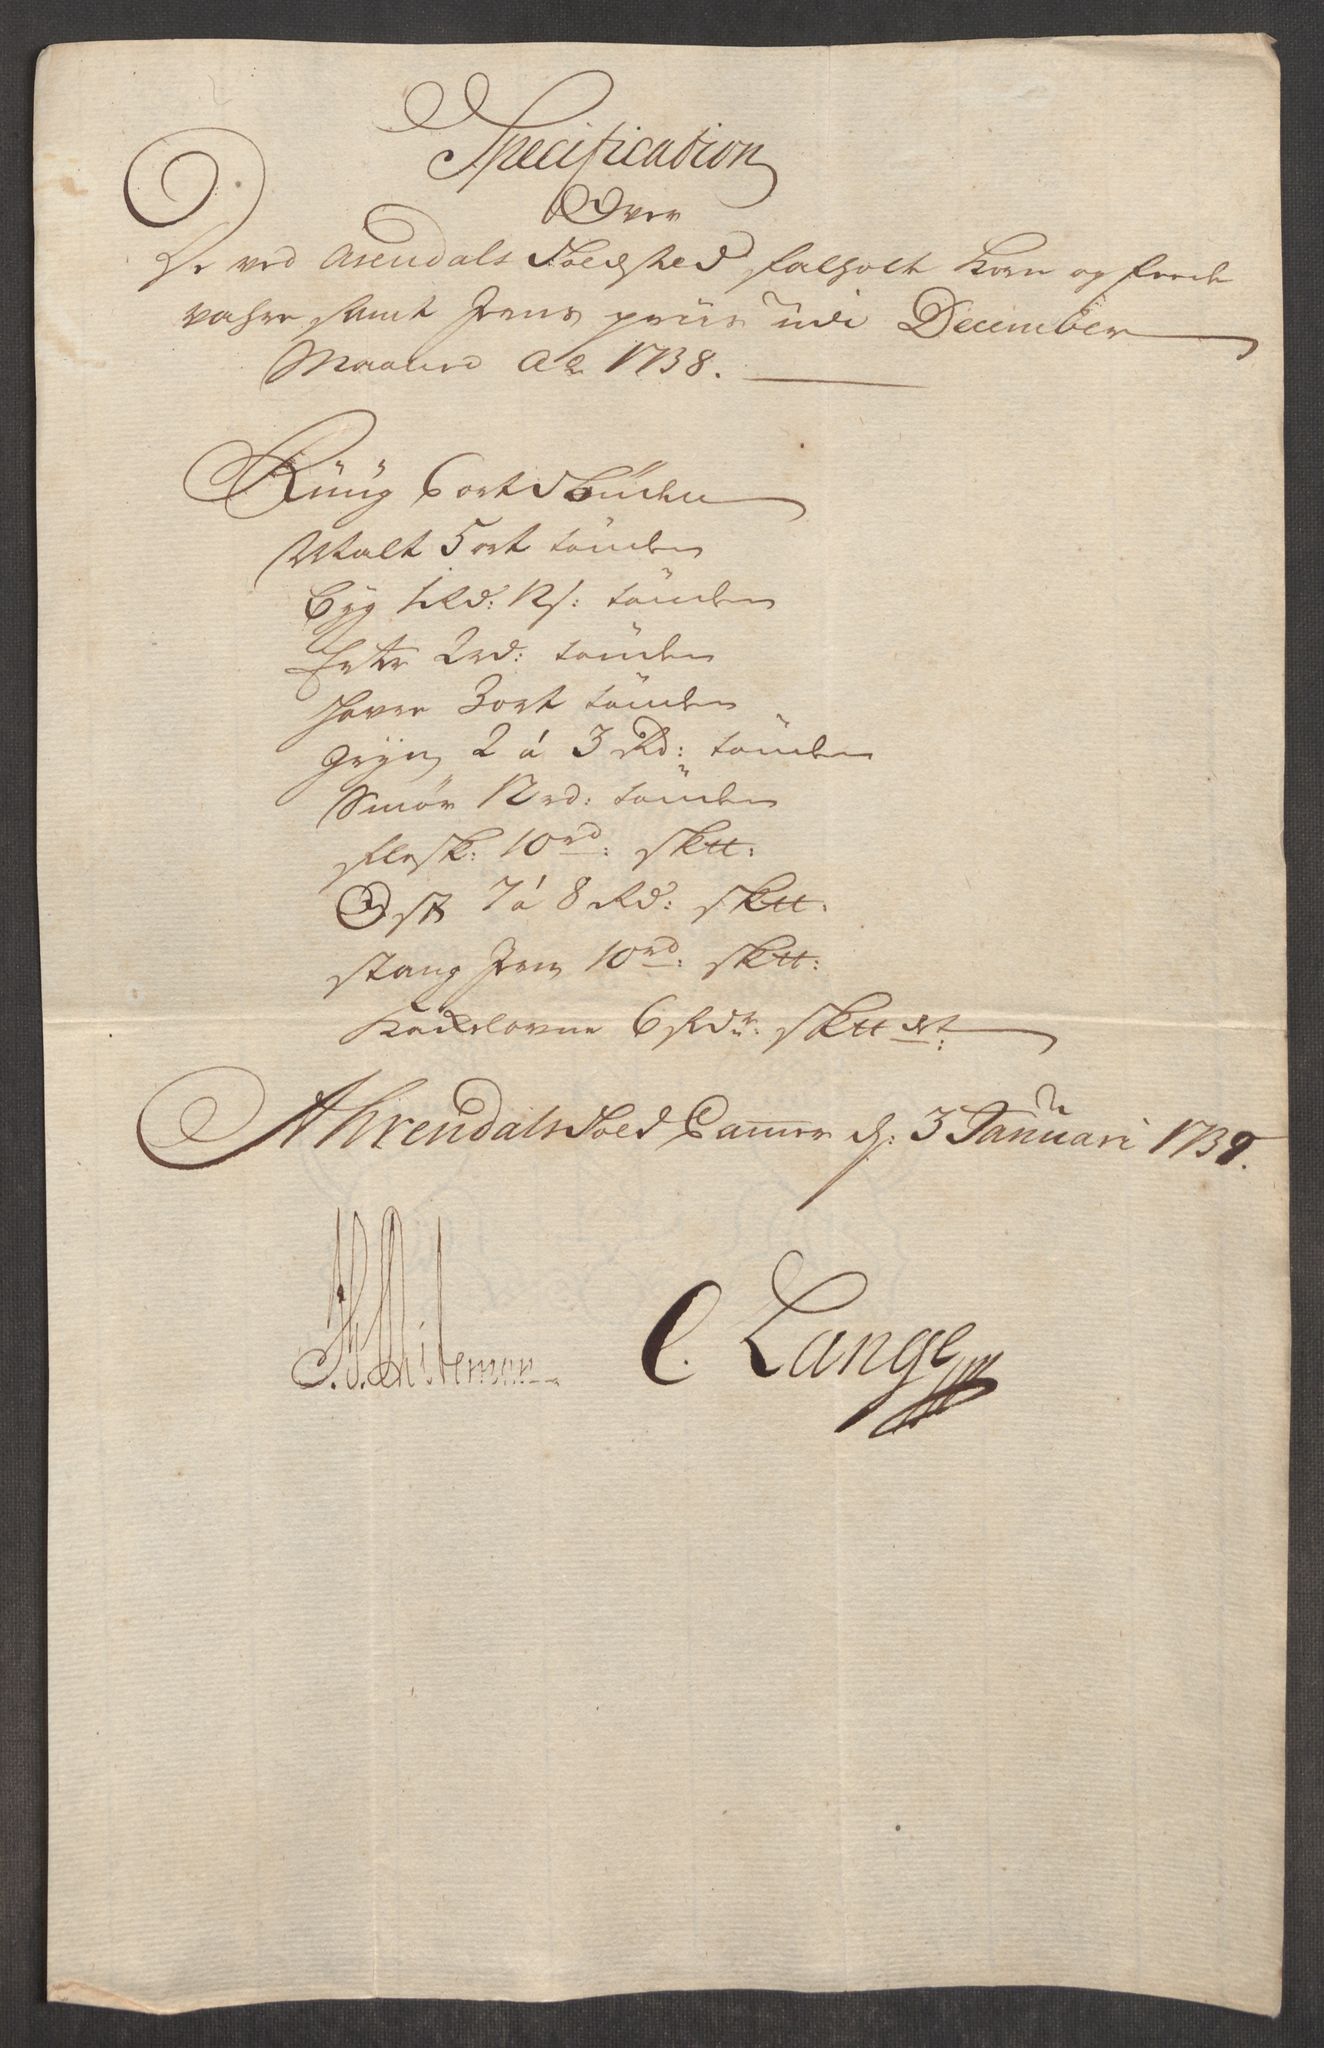 Specification
Over
De ved Arendals Toldsted falholt Korn og feede
vahre samt Jerns priis udi December
Maaned Ao 1738.
Rüüg 6 ort Tönden
Malt 5 ort tönden
Byg 1 Rd: 12 s: tönden
Erter 2 rd: tönden
Havre 3 ort tönden
Gryn 2 á 3 Rd: tönden
Smør 12 rd: tönden
flesk: 10 rd: sk℔:
Ost 7 á 8 Rd: sk℔:
stang Jern 10 rd: sk℔:
Kackelovne 6 Rdr: sk℔ et:
Ahrendals Told Camer d: 3 Januari 1739.
C. Lange